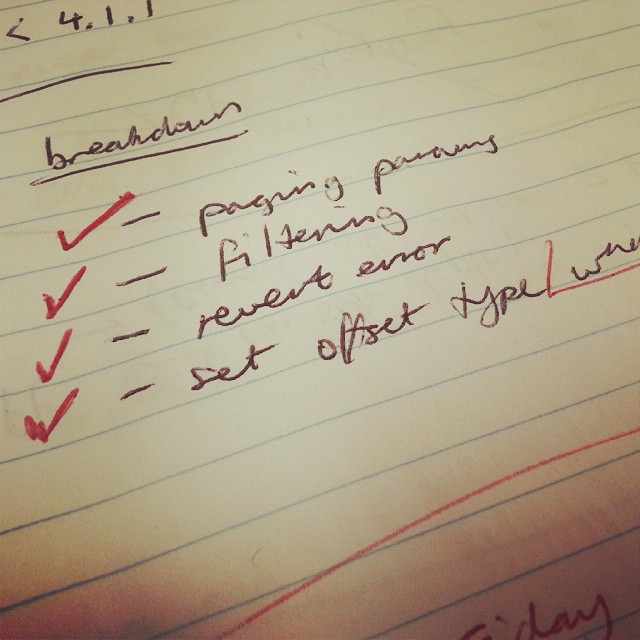 < 4.1.1
breakdown
- paging params
- filtering
- revert error
- set offset type